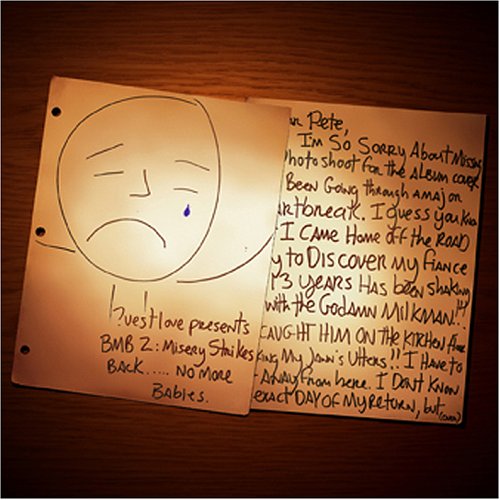 ?uestlove presents
BMB 2: Misery Strikes
BACK..... NO MORE
BABIES.
Pete,
I'm So Sorry About Missing
Photo shoot for the Album cover
Been Going through a major
I guess you know
I CAME HOME off the ROAD
to DISCOVER my FIANCE
3 YEARS HAS been shaking
with the Godamn MILKMAN!!!
CAUGHT HIM ON THE KITCHEN floor
My Jawn's Utters!! I HAVE to
AWAY from here. I DON'T KNOW
EXACT DAY OF MY RETURN, but
(over)